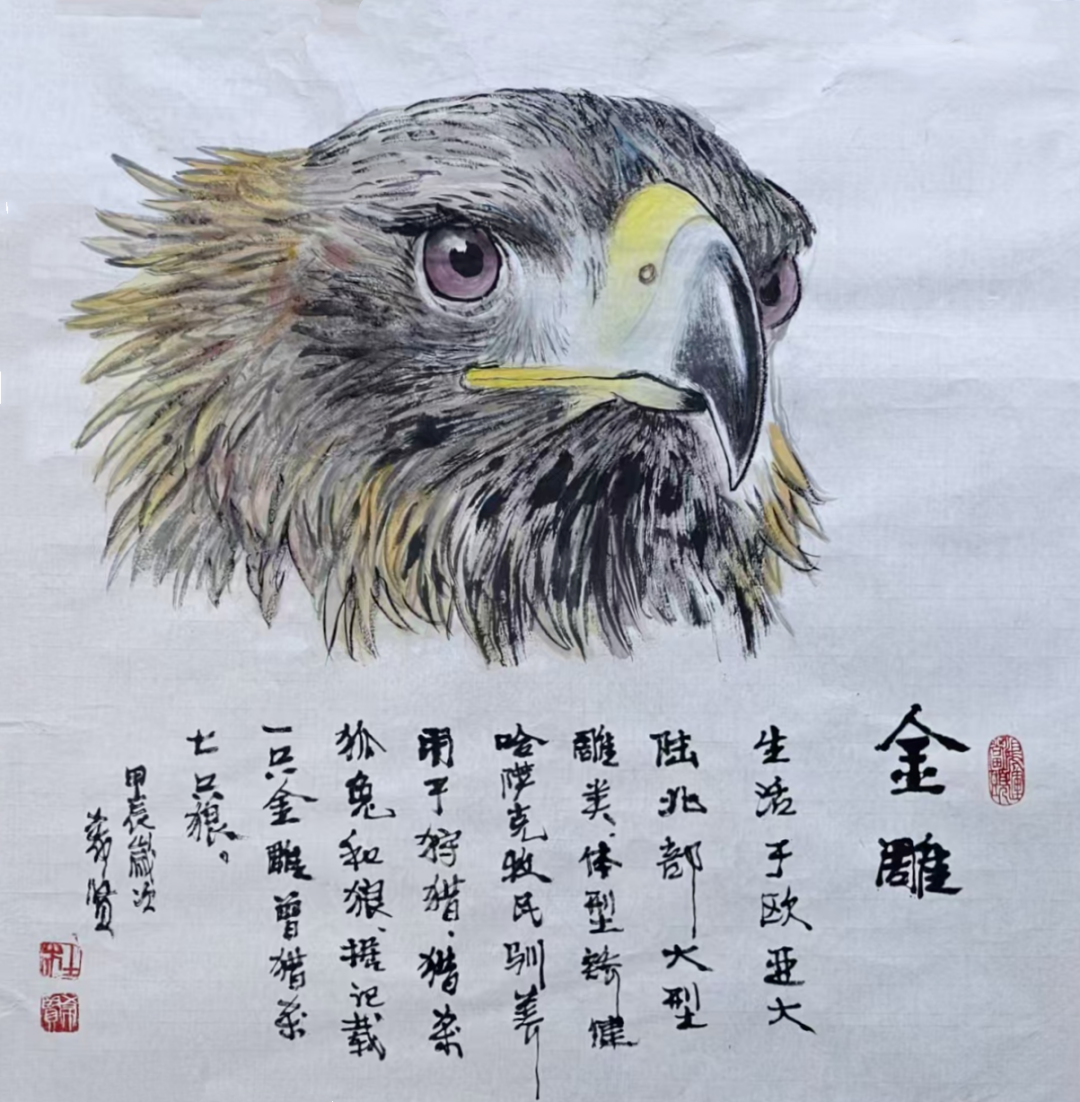 金雕
生活于欧亚大
陆北部大型
雕类、体型矫健
哈萨克牧民驯养
用于狩猎、猎杀
狐兔和狼、据记载
一只金雕曾猎杀
七只狼。
甲辰歲次